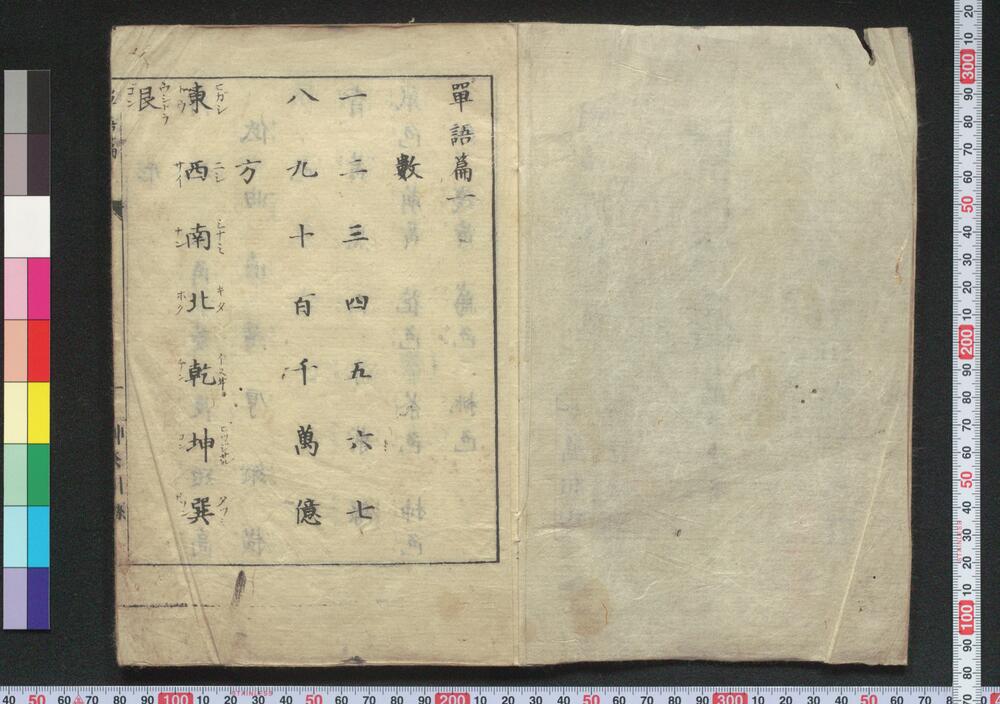 單語篇一
數
一 二 三 四 五 六 七
八 九 十 百 千 萬 億
方
東 西 南 北 乾 坤 巽
ヒガシ ニシ ミナミ キタ イヌ井 ヒツジサル タツミ
トウ サイ ナン ホク ケン コン ソン
艮
ウシトラ
ゴン